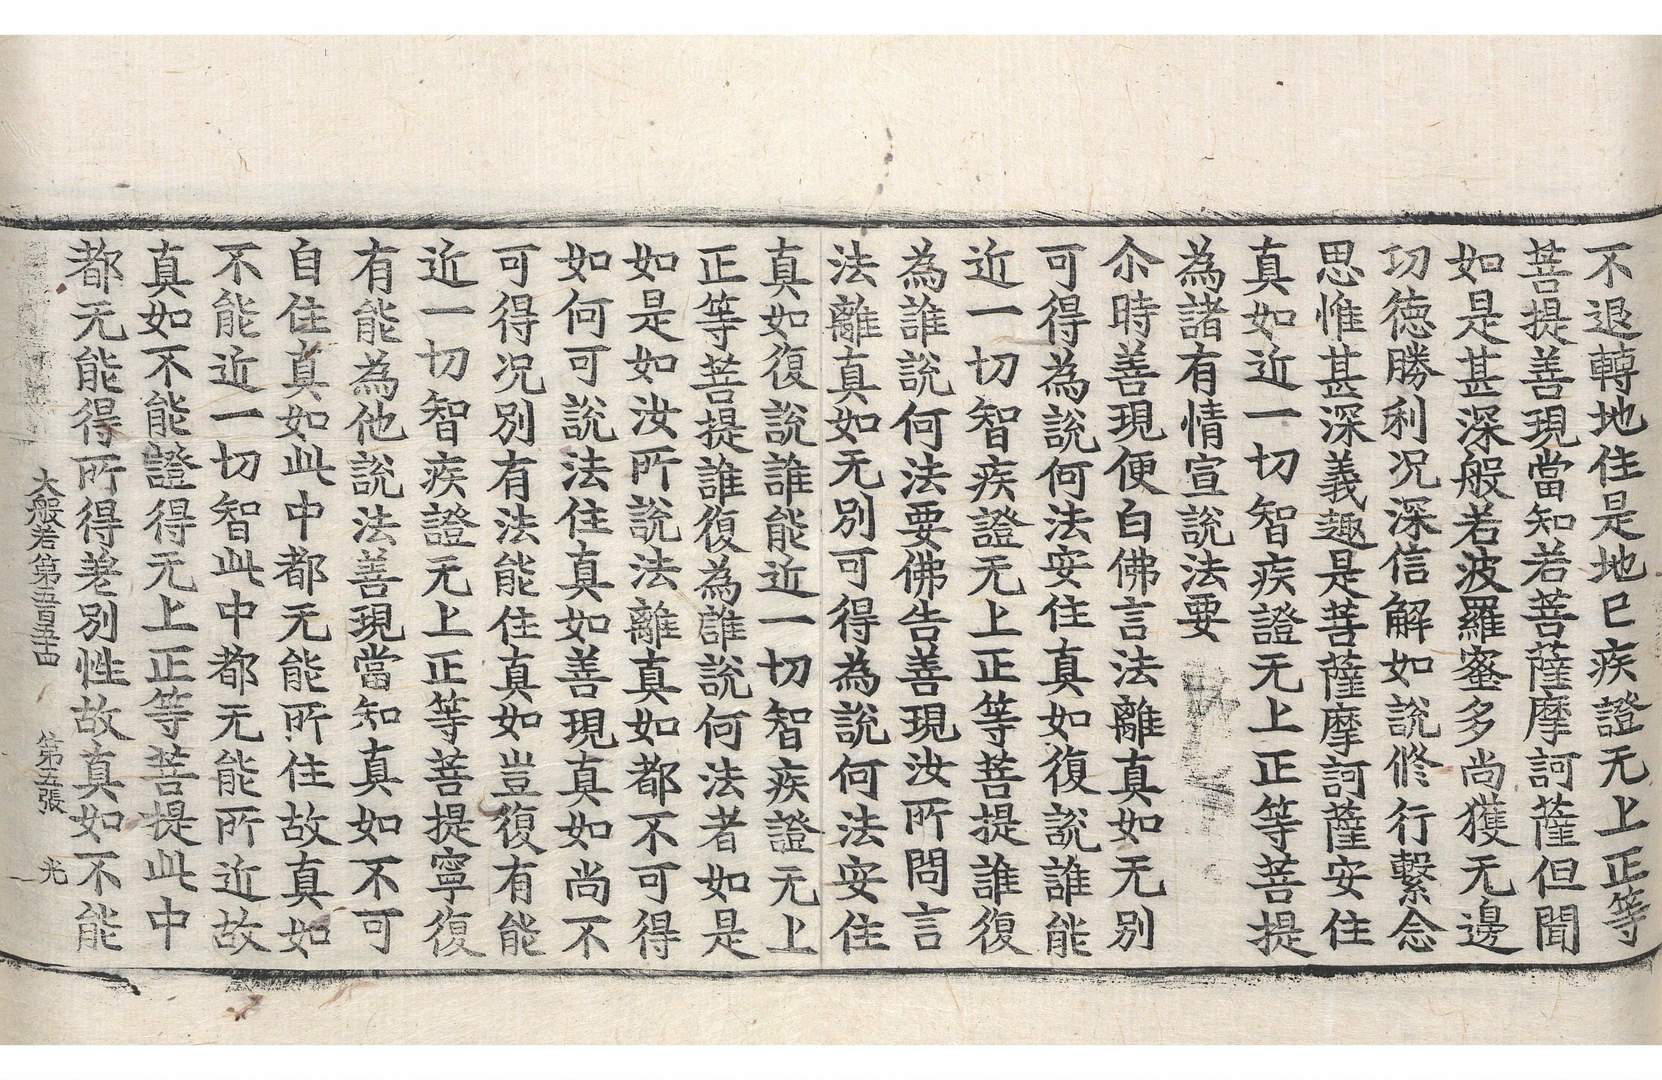 不退轉地住是地已疾證无上正等
菩提善現當知若菩薩摩訶薩但聞
如是甚深般若波羅蜜多尚獲无邊
功德勝利况深信解如說修行繫念
思惟甚深義趣是菩薩摩訶薩安住
真如近一切智疾證无上正等菩提
為諸有情宣說法要
尒時善現便白佛言法離真如无別
可得為說何法安住真如復說誰能
近一切智疾證无上正等菩提誰復
為誰說何法要佛告善現汝所問言
法離真如无別可得為說何法安住
真如復說誰能近一切智疾證无上
正等菩提誰復為誰說何法者如是
如是如汝所說法離真如都不可得
如何可說法住真如善現真如尚不
可得况別有法能住真如豈復有能
近一切智疾證无上正等菩提寧復
有能為他說法善現當知真如不可
自住真如此中都无能所住故真如
不能近一切智此中都无能所近故
真如不能證得无上正等菩提此中
都无能得所得差別性故真如不能
大般若第五百五十四 第五張 光